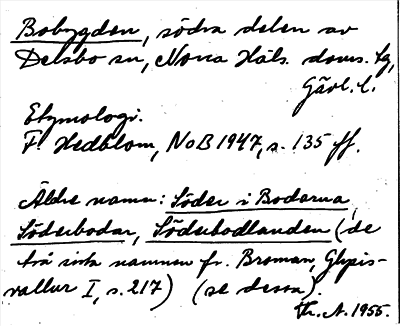 Bobygden, södra delen av
Delsbo sn, Norra Häls. doms. tg,
Gävl. l.
Etymologi.
F. Hedblom, NoB 1947, s. 135 ff.
Äldre namn: Söder i Bodarna,
Söderbodar, Söderbodlanden (de
två sista namnen fr. Broman, Glysis-
vallur I, s. 217) (se dessa).
Fr. N. 1955.